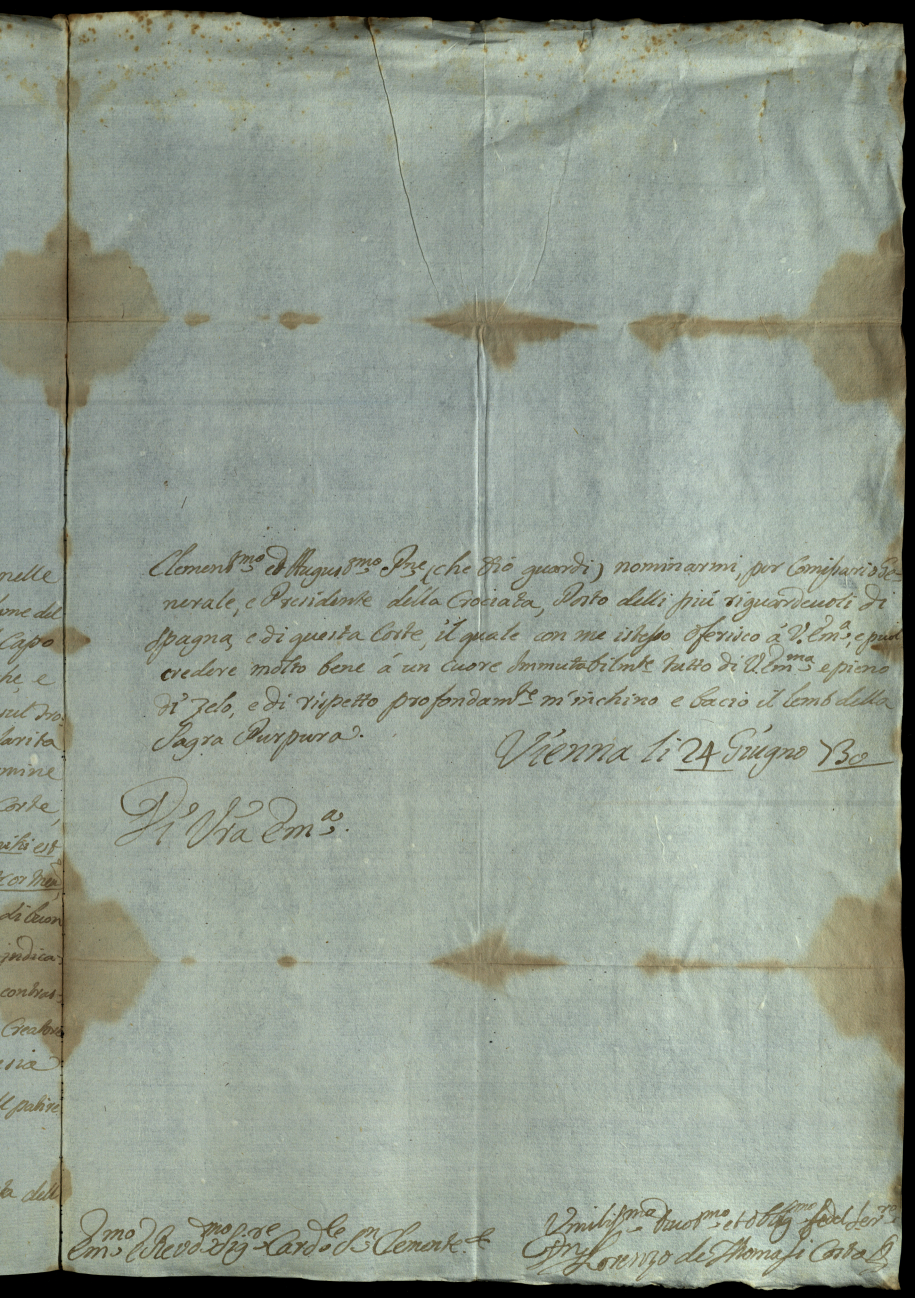 nelle
ione del
Capo
he, e
sul pro-
larità
omine
Corte,
mihi est
di buon
indica-
contras-
Creatore
esia
il patire
ta dell
Clement.mo ed August.mo Pne (che Dio guardi) nominarmi, per Comissario Ge-
nerale, e Presidente della Crociata, Posto delli più riguardeuoli di
Spagna, e di questa Corte, il quale con me istesso oferisco á V. Em.a, e può
credere molto bene á un cuore immutabilm.te tutto di V. Em.ma e pieno
di Zelo, e di rispetto profondam.te m'inchino e bacio il lemb della
Sagra Purpura.
Vienna li 24 Giugno 730
Di Vra Em.a
Em.mo e Reud.mo Sig.re Card.le Sn Clemente
Umiliss.ma diuot.mo et obblig.mo fedel Ser.re
Lorenzo de Thomasi